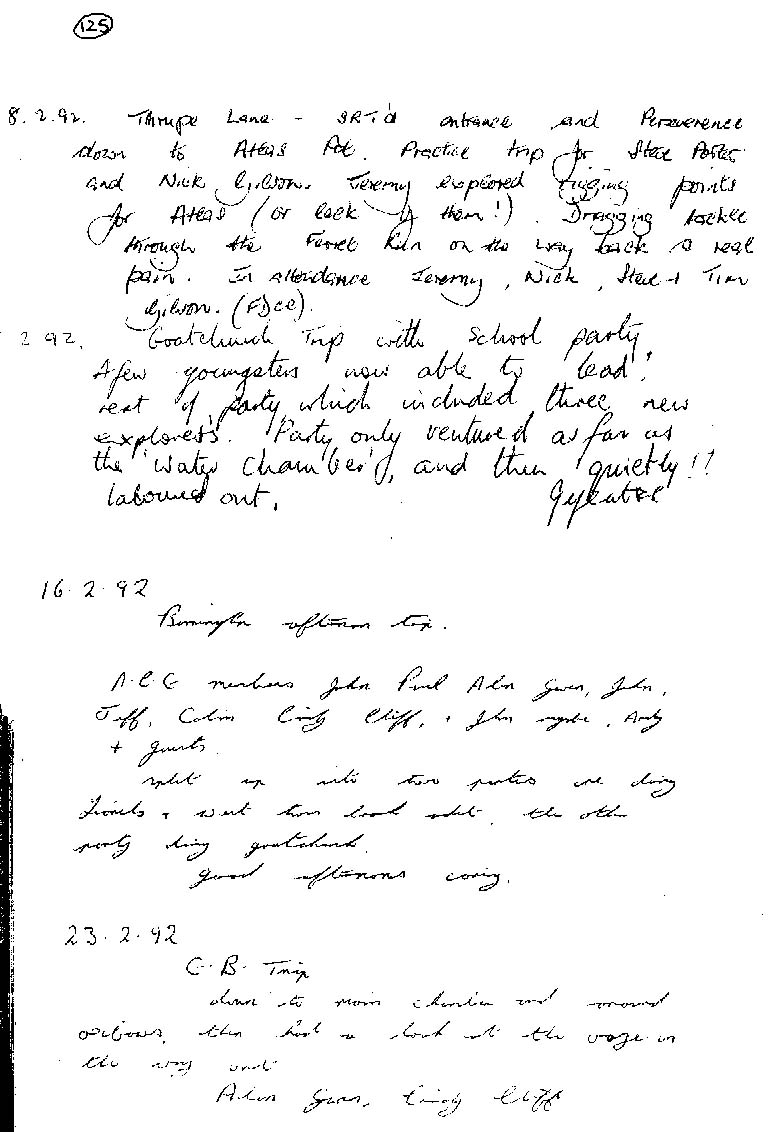 125
8.2.92. Thrupe Lane - SRT'd entrance and Perseverence
down to Atlas Pot. Practice trip for Steve Porter
and Nick Gibson. Jeremy explored rigging points
for Atlas (or lack of them!). Dragging tackle
through the Ferret Run on the way back a real
pain. In attendance Jeremy, Nick, Steve + Tim
Gibson. (FDCC).
2 92. Goatchurch Trip with School party
A few youngsters now able to lead!
rest of party which included three new
explorers. Party only ventured as far as
the 'Water Chamber', and then quietly!!
laboured out.
16.2.92
Burrington afternoon trip.
A.C.G members John Paul Alan Gwen, John,
Jeff, Colin Cindy Cliff, + John, Andy
+ guests
split up into two parties one doing
Lionels + west twin, the other
party doing goatchurch.
good afternoons caving.
23.2.92
G.B. Trip
down to main chamber and around
oxbows, then had a look at the gorge on
the way out
Alan Gwen, Cindy Cliff